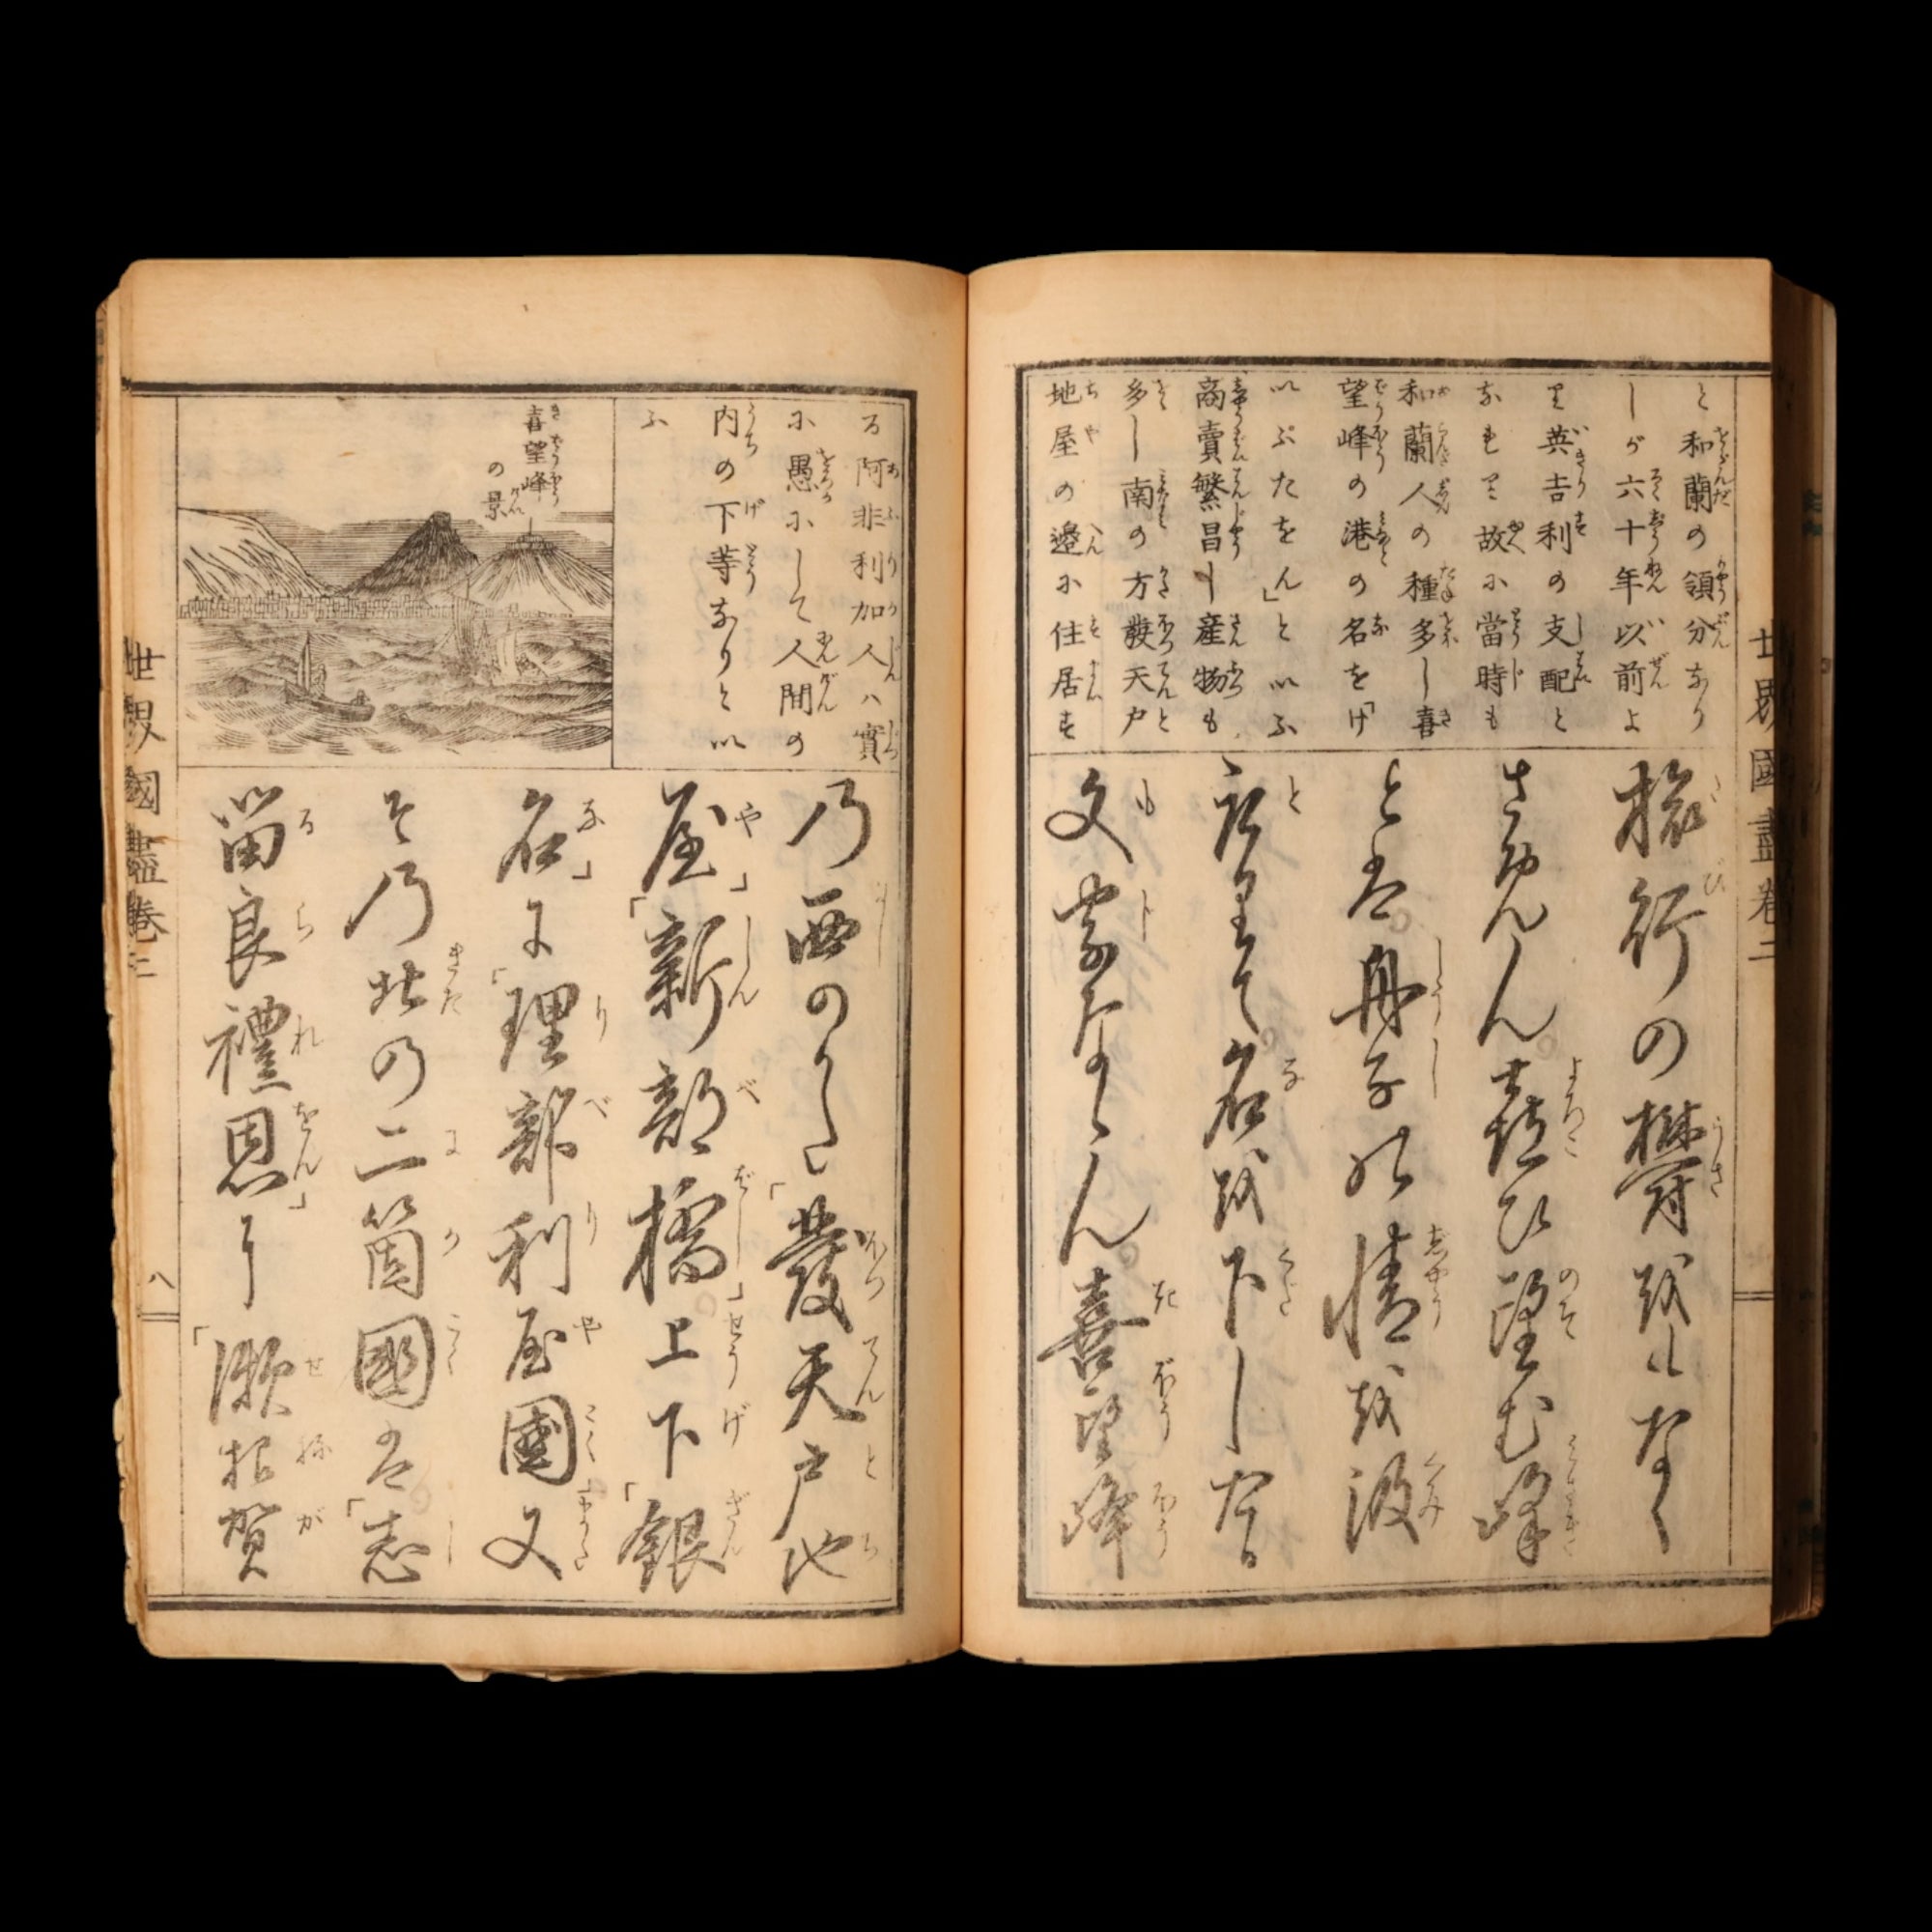 と和蘭の領分なり
しが六十年以前よ
り英吉利の支配と
なれり故に當時も
和蘭人の種多し喜
望峰の港の名を「け
いぷたをん」と以ふ
商賣繁昌し産物も
多し南の方發天戸
地屋の邊に住居す
旅行の欝越山なく
さめん喜ひ望む峰
と盤舟子の情越汲
名越下し
文字ならん喜望峰
る阿非利加人ハ實
に愚にして人間の
内の下等なりと以
ふ
喜望峰
の景
乃西のかた「發天戸地
屋」「新部橋」上下「銀
名」に「理部利屋國又
そ乃北の二箇國盤「志
留良禮恩」「瀬根賀
世界國盡卷二
世界國盡卷二
八